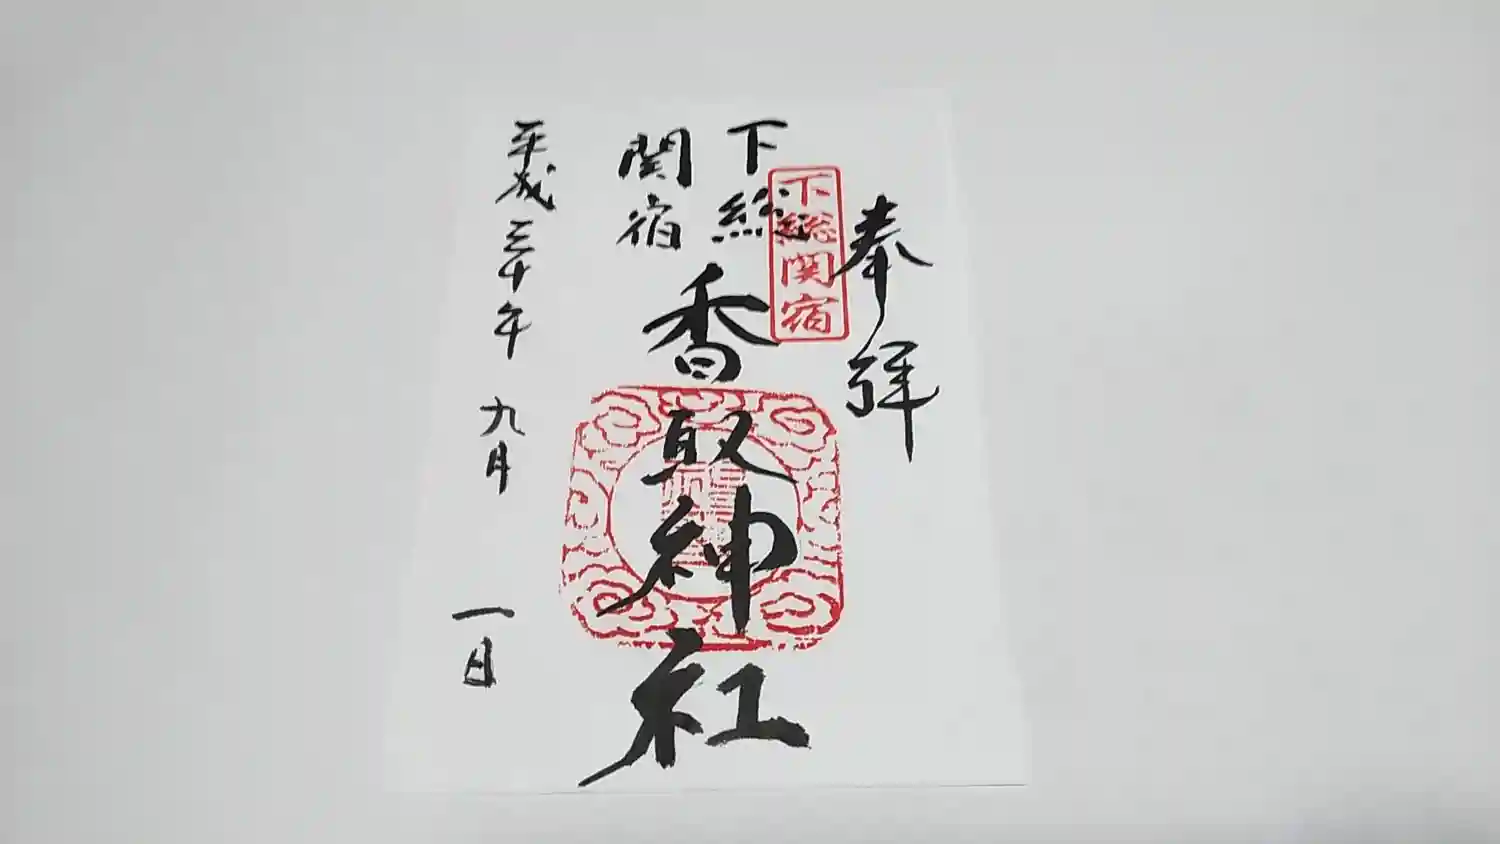 奉拝
下総関宿
下総
関宿
香取神社
平成三十年 九月 一日